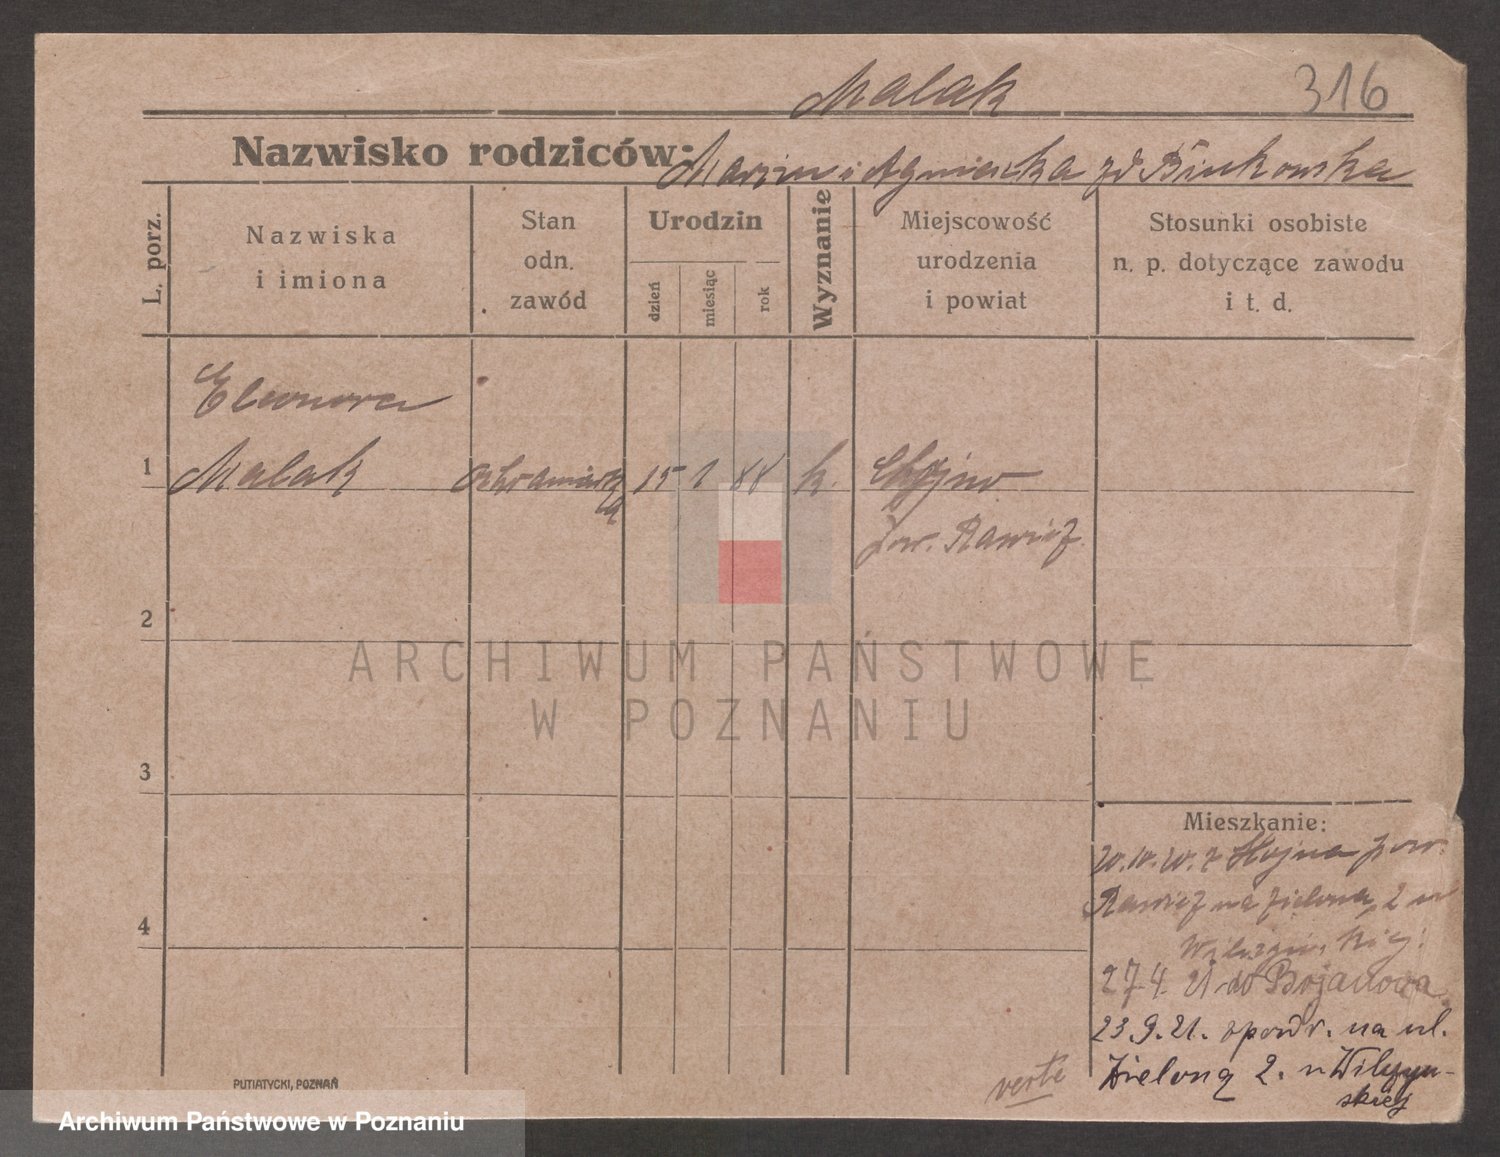 Malak 316
Nazwisko rodziców: Marcin i Agnieszka zd Binkowska
L. porz.
Nazwiska
i imiona
Stan
odn.
zawód
Urodzin
dzień
miesiąc
rok
Wyznanie
Miejscowość
urodzenia
i powiat
Stosunki osobiste
n. p. dotyczące zawodu
i t. d.
Eleonora
1 Malak 15 1 88 k.
pow. Rawicz
2
ARCHIWUM PAŃSTWOWE
W POZNANIU
3
Mieszkanie:
z pow.
Rawicz na Zieloną 2 u
4
27.4.21 do Bojanowa
23.9.21. spowr. na ul.
Zieloną 2. u Wilczyń-
skiej
verte
PUTIATYCKI, POZNAŃ
Archiwum Państwowe w Poznaniu